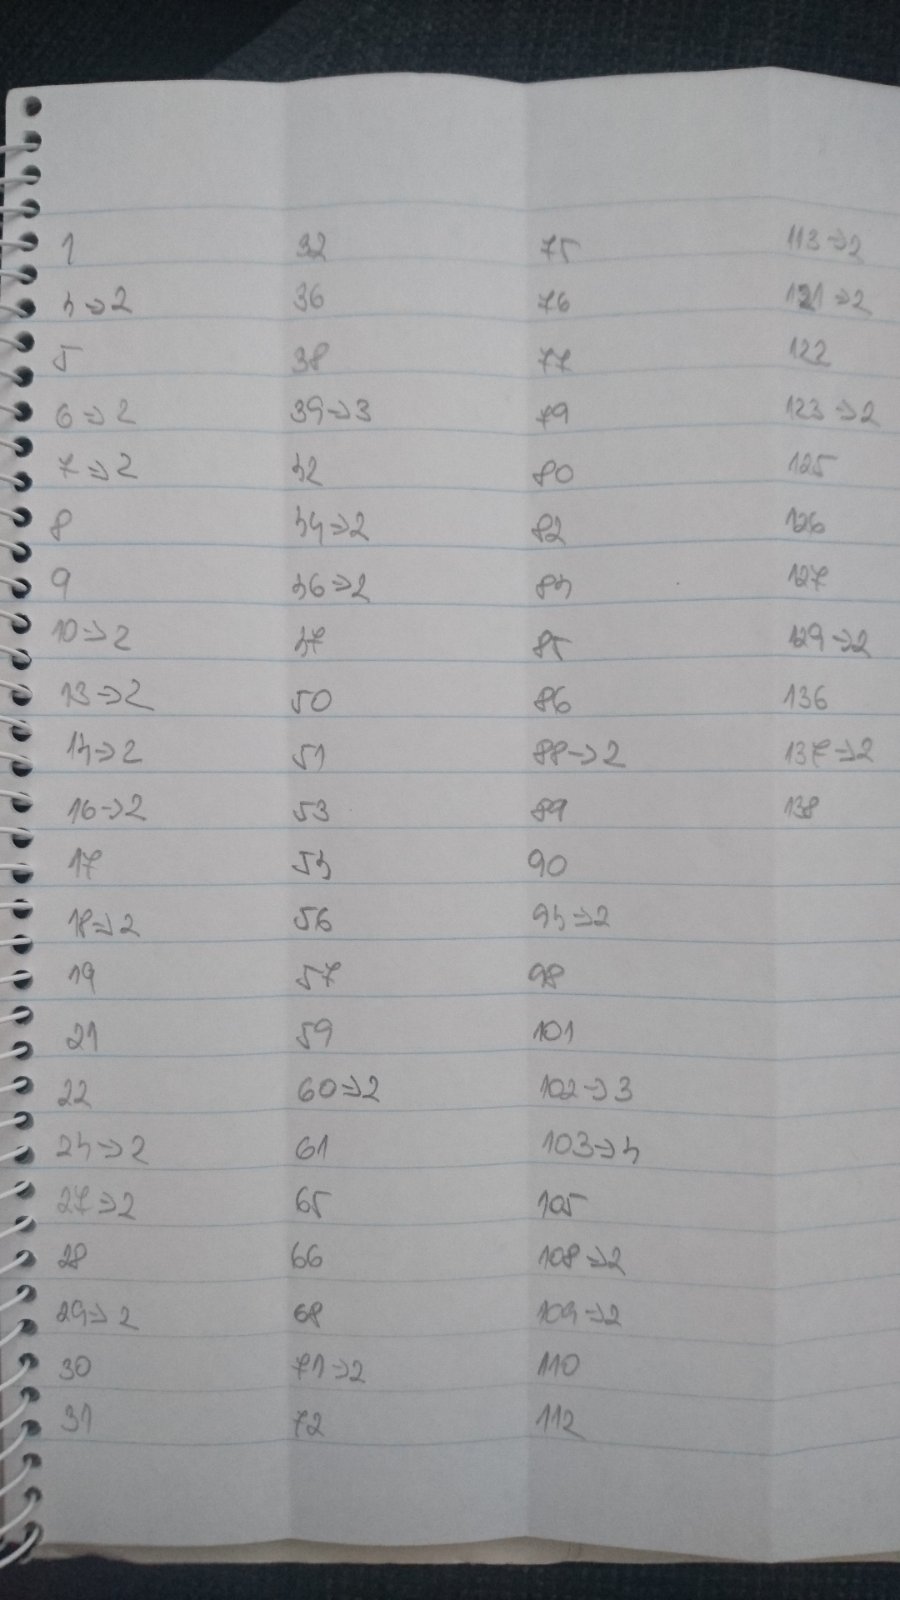 1
4⇒2
5
6⇒2
7⇒2
8
9
10⇒2
13⇒2
14⇒2
16⇒2
17
18⇒2
19
21
22
24⇒2
27⇒2
28
29⇒2
30
31
32
36
38
39⇒3
42
44⇒2
46⇒2
47
50
51
53
54
56
57
59
60⇒2
61
65
66
68
71⇒2
72
75
76
77
79
80
82
84
85
86
88⇒2
89
90
94⇒2
98
101
102⇒3
103⇒4
105
108⇒2
109⇒2
110
112
113⇒2
121⇒2
122
123⇒2
125
126
127
129⇒2
136
137⇒2
138